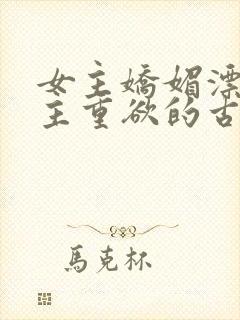 女主嬌媚漂
主重欲的古
馬克杯